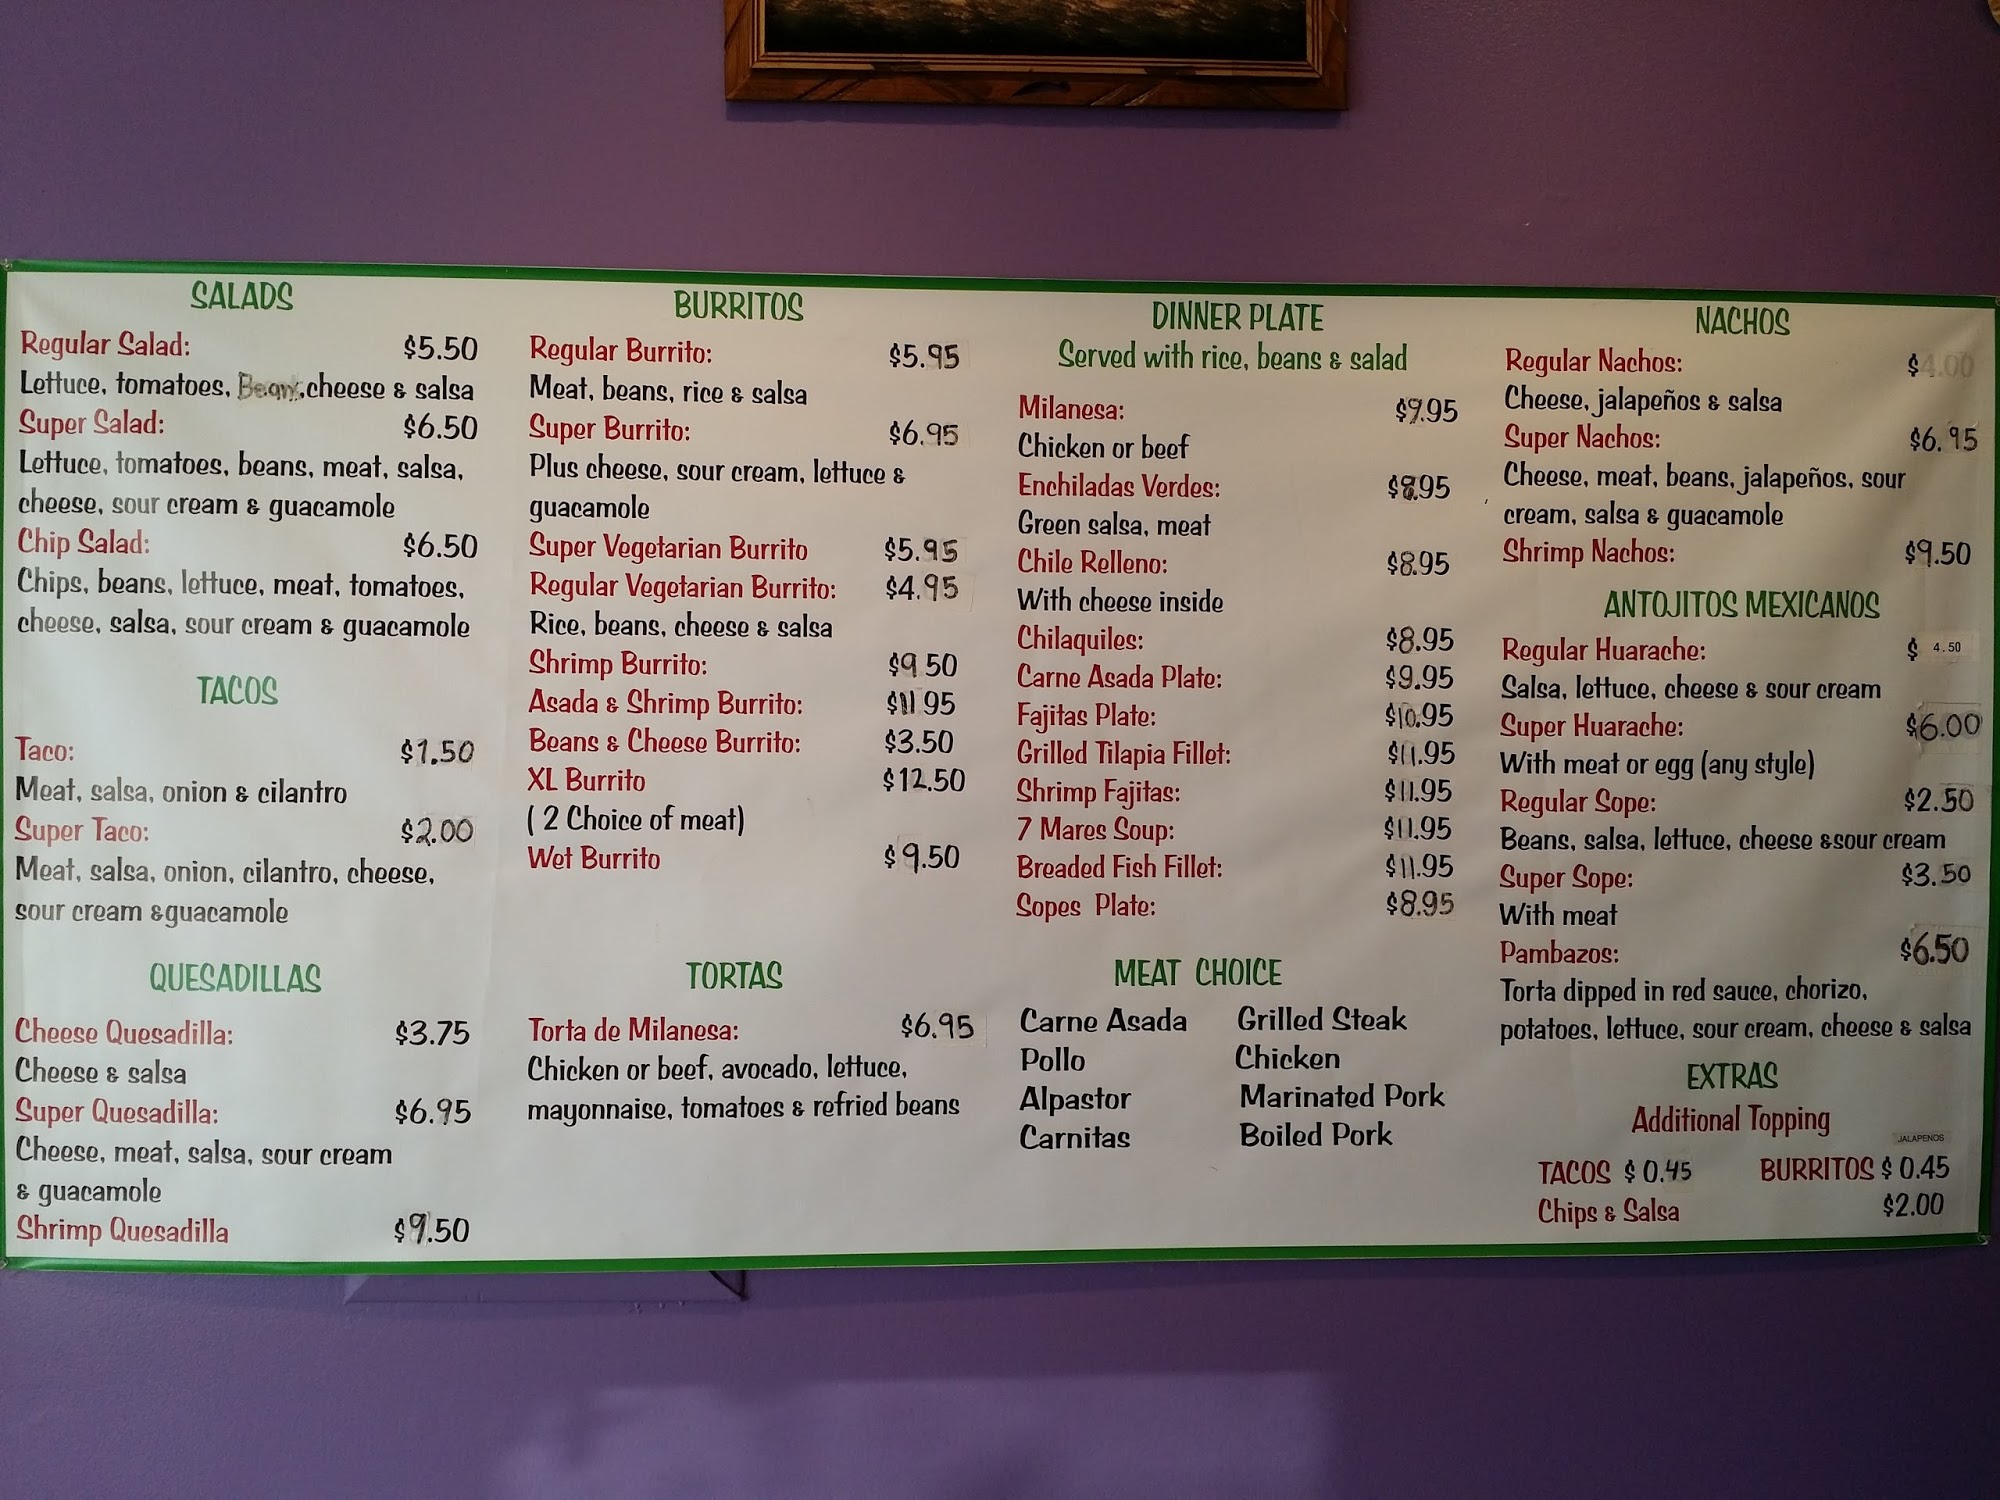 SALADS
Regular Salad: $5.50
Lettuce, tomatoes, Beans, cheese & salsa
Super Salad: $6.50
Lettuce, tomatoes, beans, meat, salsa,
cheese, sour cream & guacamole
Chip Salad: $6.50
Chips, beans, lettuce, meat, tomatoes,
cheese, salsa, sour cream & guacamole
TACOS
Taco: $1.50
Meat, salsa, onion & cilantro
Super Taco: $2.00
Meat, salsa, onion, cilantro, cheese,
sour cream &guacamole
QUESADILLAS
Cheese Quesadilla: $3.75
Cheese & salsa
Super Quesadilla: $6.95
Cheese, meat, salsa, sour cream
& guacamole
Shrimp Quesadilla $9.50
BURRITOS
Regular Burrito: $5.95
Meat, beans, rice & salsa
Super Burrito: $6.95
Plus cheese, sour cream, lettuce &
guacamole
Super Vegetarian Burrito $5.95
Regular Vegetarian Burrito: $4.95
Rice, beans, cheese & salsa
Shrimp Burrito: $9.50
Asada & Shrimp Burrito: $11.95
Beans & Cheese Burrito: $3.50
XL Burrito $12.50
( 2 Choice of meat)
Wet Burrito $9.50
TORTAS
Torta de Milanesa: $6.95
Chicken or beef, avocado, lettuce,
mayonnaise, tomatoes & refried beans
DINNER PLATE
Served with rice, beans & salad
Milanesa: $9.95
Chicken or beef
Enchiladas Verdes: $8.95
Green salsa, meat
Chile Relleno: $8.95
With cheese inside
Chilaquiles: $8.95
Carne Asada Plate: $9.95
Fajitas Plate: $10.95
Grilled Tilapia Fillet: $11.95
Shrimp Fajitas: $11.95
7 Mares Soup: $11.95
Breaded Fish Fillet: $11.95
Sopes Plate: $8.95
MEAT CHOICE
Carne Asada Grilled Steak
Pollo Chicken
Alpastor Marinated Pork
Carnitas Boiled Pork
NACHOS
Regular Nachos: $4.00
Cheese, jalapeños & salsa
Super Nachos: $6.95
Cheese, meat, beans, jalapeños, sour
cream, salsa & guacamole
Shrimp Nachos: $9.50
ANTOJITOS MEXICANOS
Regular Huarache: $ 4.50
Salsa, lettuce, cheese & sour cream
Super Huarache: $6.00
With meat or egg (any style)
Regular Sope: $2.50
Beans, salsa, lettuce, cheese &sour cream
Super Sope: $3.50
With meat
Pambazos: $6.50
Torta dipped in red sauce, chorizo,
potatoes, lettuce, sour cream, cheese & salsa
EXTRAS
Additional Topping
JALAPENOS
TACOS $ 0.45 BURRITOS $ 0.45
Chips & Salsa $2.00